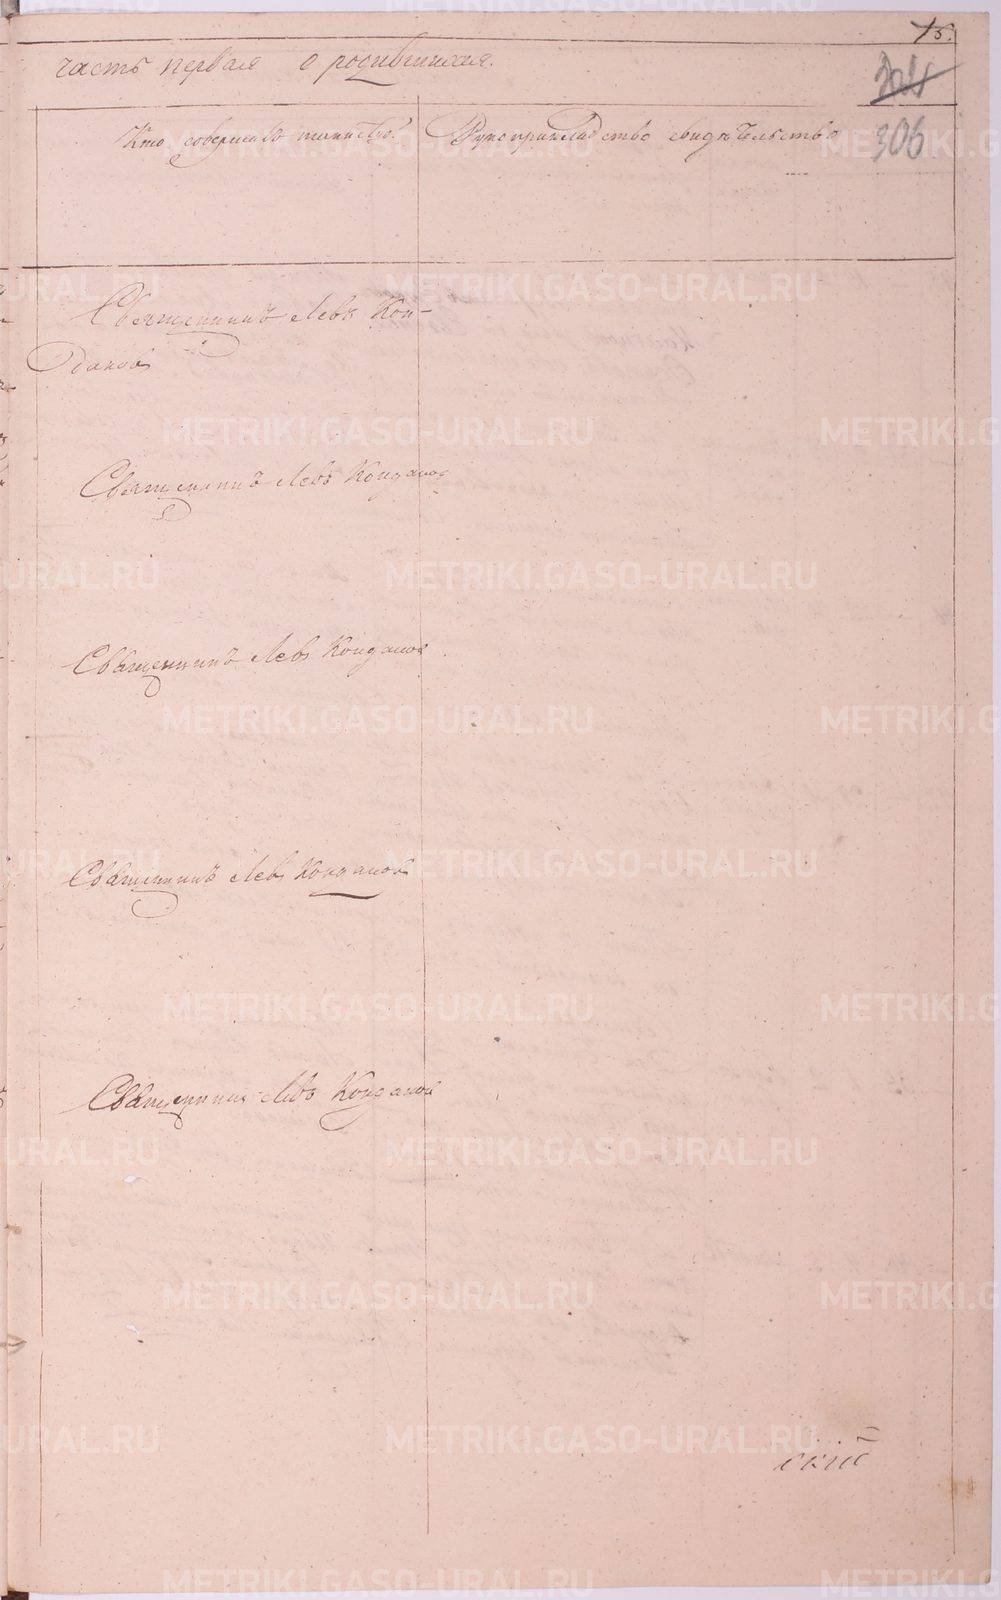 15.
часть первая о родившихся.
304
306
Кто совершалъ таинство.
Рукоприкладство свидѣтельство
Священникъ Левъ Кон-
даковъ
Священникъ Левъ Кондаков
Священникъ Левъ Кондаков
Священникъ Левъ Кондаков
Священникъ Левъ Кондаков
METRIKI.GASO-URAL.RU